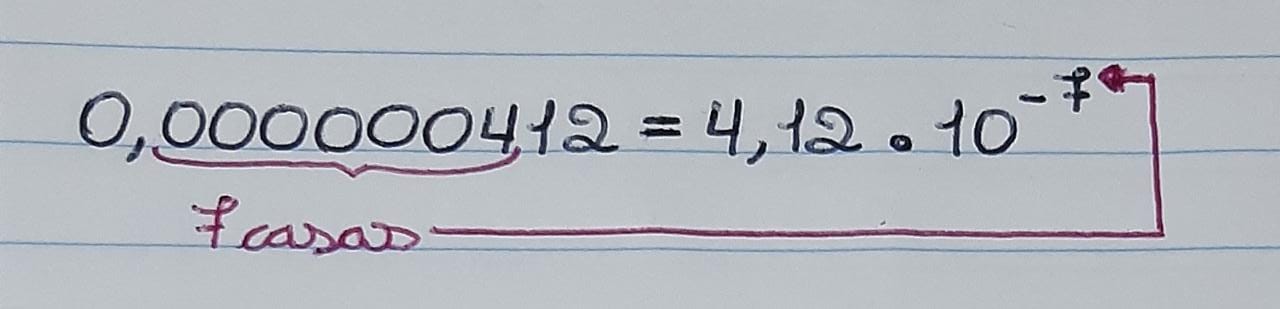 0,000000412 = 4,12 • 10⁻⁷
7 casas